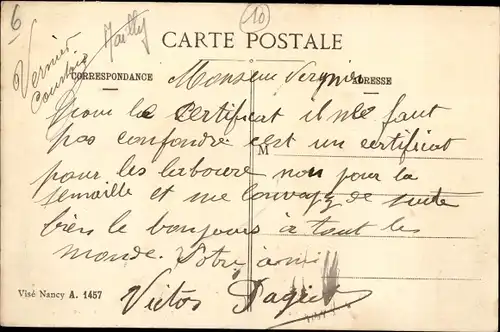 6
10
Vernier
Mailly
CARTE POSTALE
CORRESPONDANCE
ADRESSE
Monsieur Vergnier
pour le certificat il me faut
pas confondre c'est un certificat
M
pour les laboure non pour la
semaille et me l'envoyez de suite
bien le bonjours à tout les
monde. Votre ami
Victor Paquet
Visé Nancy A. 1457